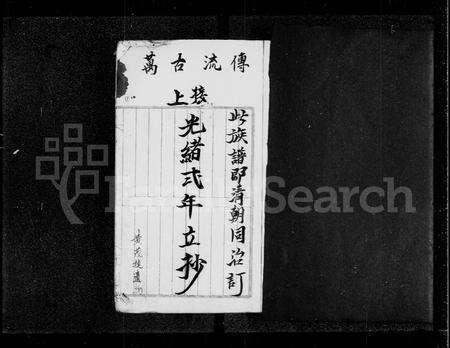 萬古流傳
接上
此族譜即清朝同治訂
光緒弍年立抄
FamilySearch